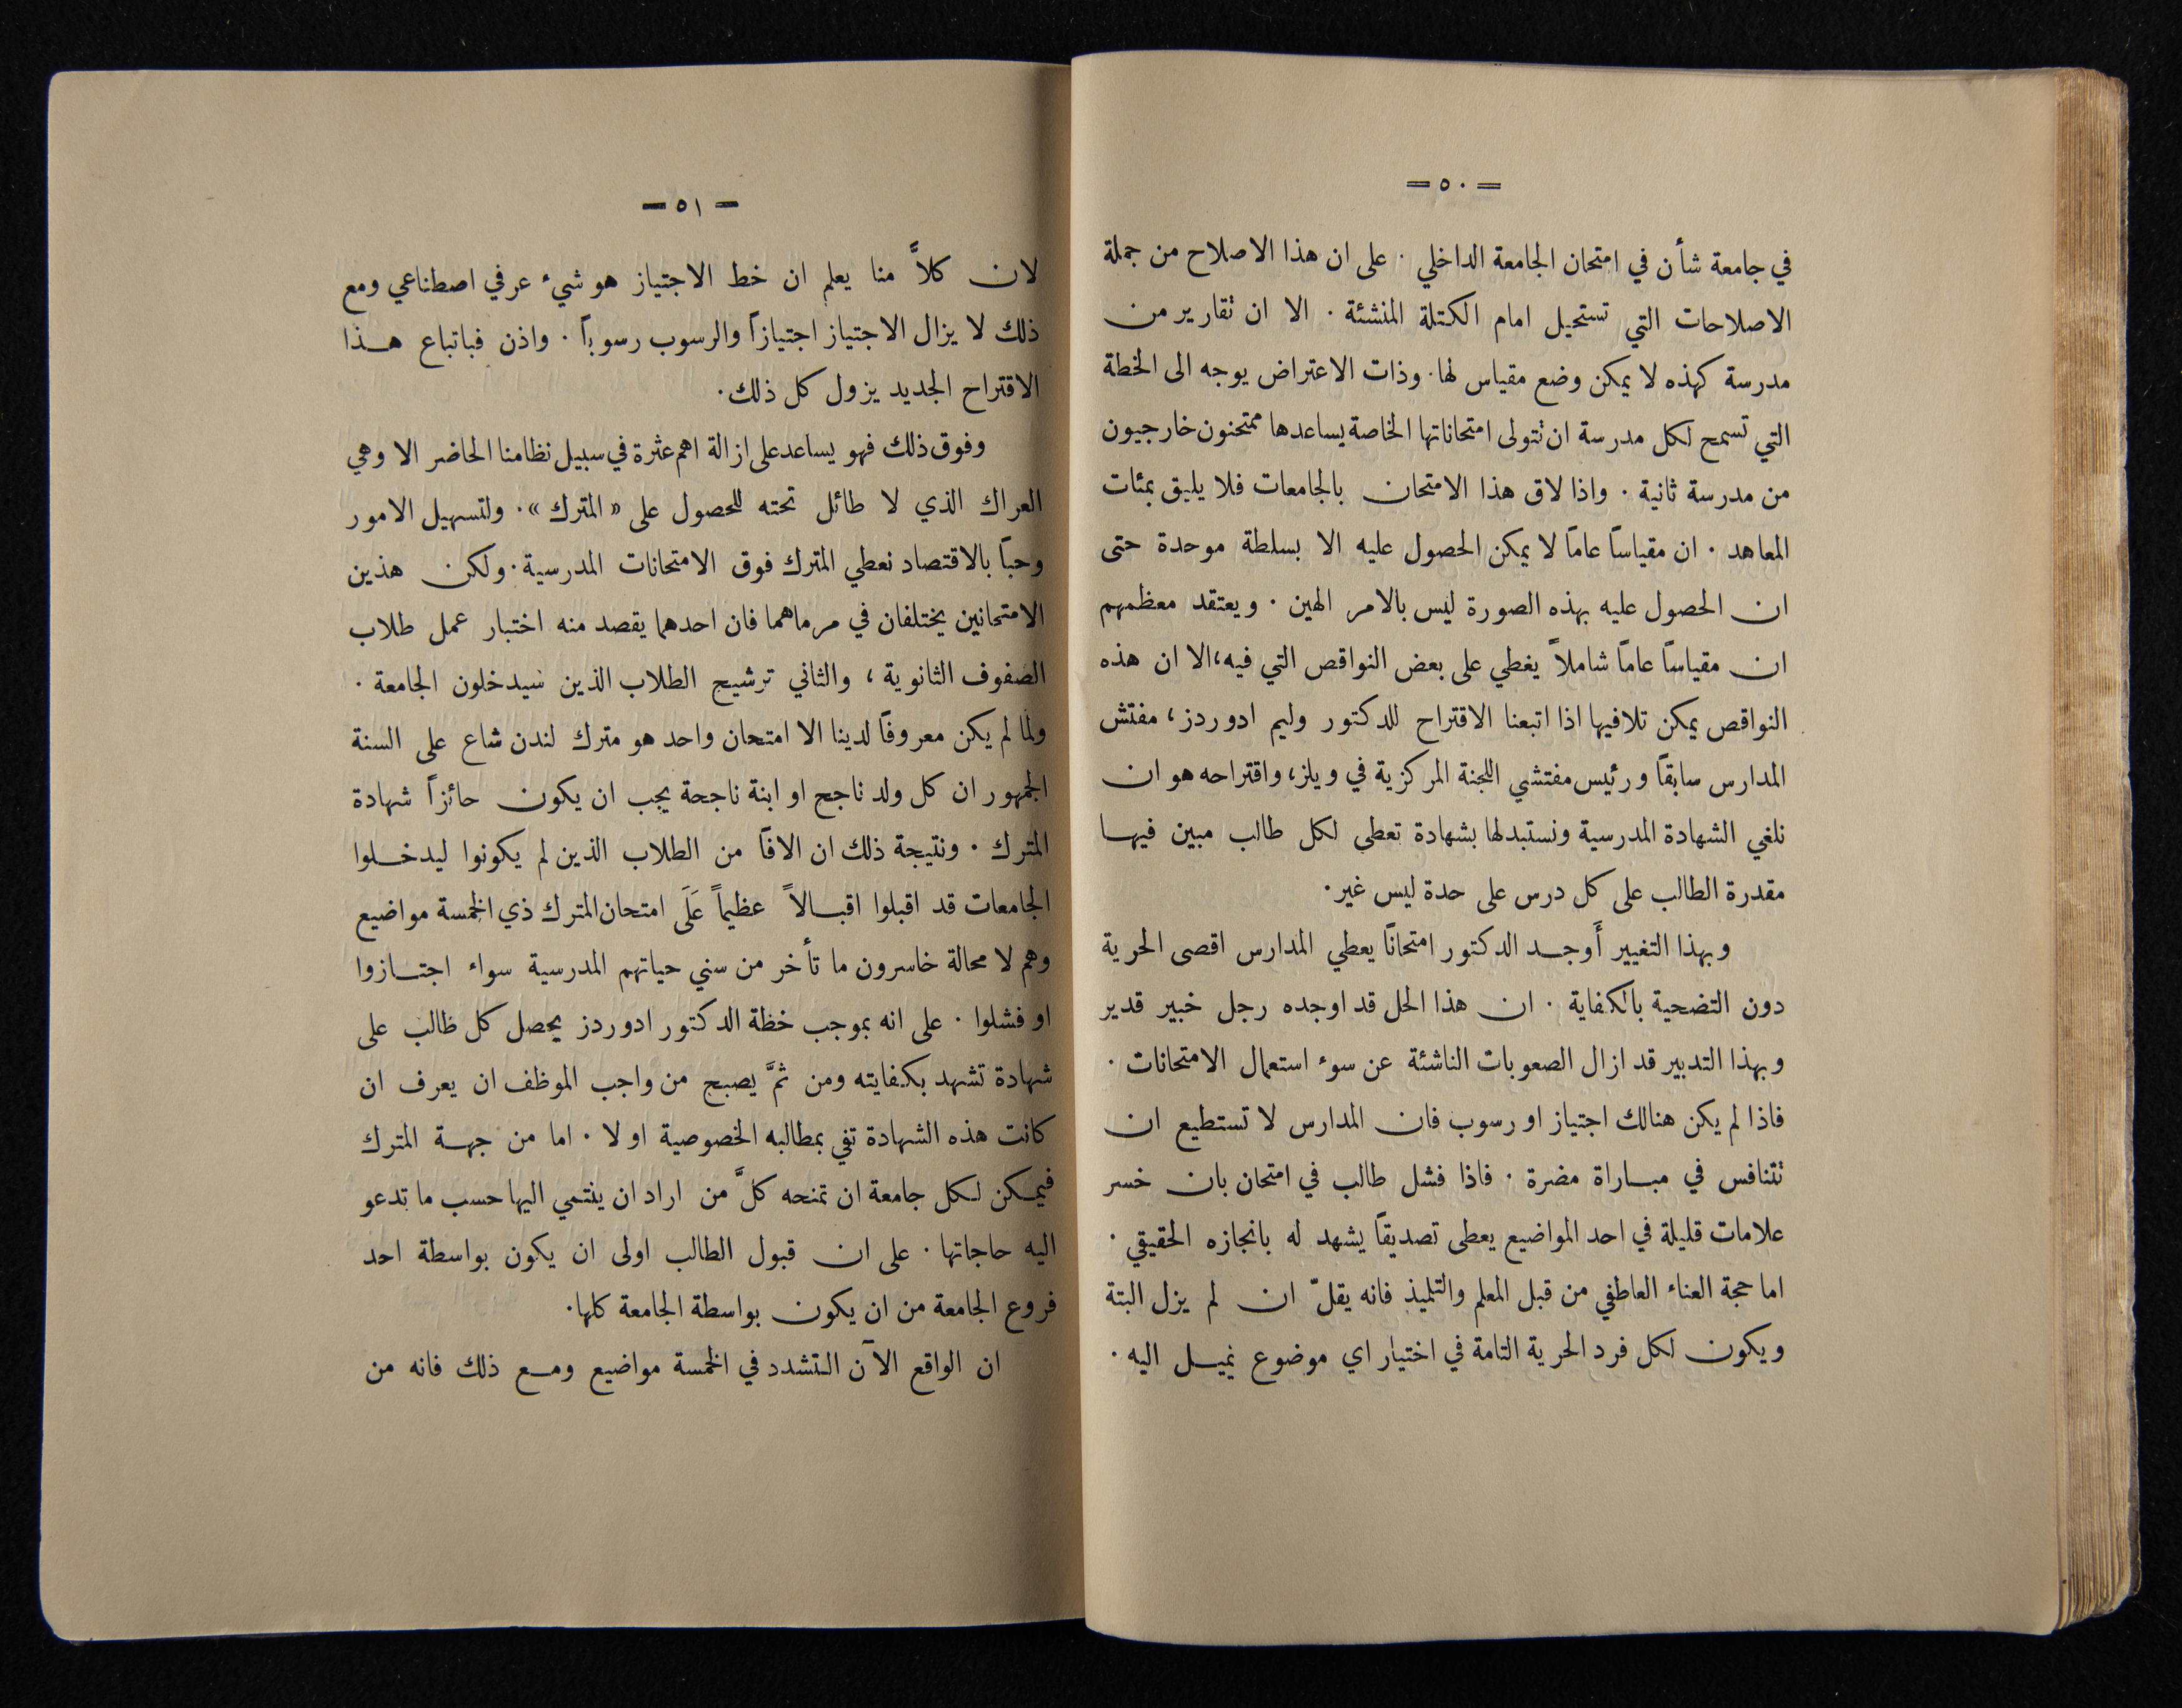 = ٥٠ =
في جامعة شأن في امتحان الجامعة الداخلي . على ان هذا الاصلاح من جملة
الاصلاحات التي تستحيل امام الكتلة المنشئة . الا ان تقارير من
مدرسة كهذه لا يمكن وضع مقياس لها . وذات الاعتراض يوجه الى الخطة
التي تسمح لكل مدرسة ان تتولى امتحاناتها الخاصة يساعدها ممتحنون خارجيون
من مدرسة ثانية . واذا لاق هذا الامتحان بالجامعات فلا يليق بمئات
المعاهد . ان مقياساً عاماً لا يمكن الحصول عليه الا بسلطة موحدة حتى
ان الحصول عليه بهذه الصورة ليس بالامر الهين . ويعتقد معظمهم
ان مقياساً عاماً شاملاً يغطي على بعض النواقص التي فيه، الا ان هذه
النواقص يمكن تلافيها اذا اتبعنا الاقتراح للدكتور وليم ادوردز، مفتش
المدارس سابقاً ورئيس مفتشي اللجنة المركزية في ويلز، واقتراحه هو ان
نلغي الشهادة المدرسية ونستبدلها بشهادة تعطى لكل طالب مبين فيها
مقدرة الطالب على كل درس على حدة ليس غير .
وبهذا التغيير أَوجد الدكتور امتحاناً يعطي المدارس اقصى الحرية
دون التضحية بالكفاية . ان هذا الحل قد اوجده رجل خبير قدير
وبهذا التدبير قد ازال الصعوبات الناشئة عن سوء استعمال الامتحانات .
فاذا لم يكن هنالك اجتياز او رسوب فان المدارس لا تستطيع ان
تتنافس في مباراة مضرة . فاذا فشل طالب في امتحان بان خسر
علامات قليلة في احد المواضيع يعطى تصديقاً يشهد له بانجازه الحقيقي .
اما حجة العناء العاطفي من قبل المعلم والتلميذ فانه يقلّ ان لم يزل البتة
ويكون لكل فرد الحرية التامة في اختيار اي موضوع يميل اليه .
= ٥١ =
لان كلاًّ منا يعلم ان خط الاجتياز هو شيء عرفي اصطناعي ومع
ذلك لا يزال الاجتياز اجتيازاً والرسوب رسوباً . واذن فباتباع هذا
الاقتراح الجديد يزول كل ذلك .
وفوق ذلك فهو يساعد على ازالة اهم عثرة في سبيل نظامنا الحاضر الا وهي
العراك الذي لا طائل تحته للحصول على « المترك » . ولتسهيل الامور
وحباً بالاقتصاد نعطي المترك فوق الامتحانات المدرسية . ولكن هذين
الامتحانين يختلفان في مرماهما فان احدهما يقصد منه اختبار عمل طلاب
الصفوف الثانوية ، والثاني ترشيح الطلاب الذين سيدخلون الجامعة .
ولما لم يكن معروفاً لدينا الا امتحان واحد هو مترك لندن شاع على السنة
الجمهور ان كل ولد ناجح او ابنة ناجحة يجب ان يكون حائزاً شهادة
المترك . ونتيجة ذلك ان الافاً من الطلاب الذين لم يكونوا ليدخلوا
الجامعات قد اقبلوا اقبالاً عظيماً عَلَى امتحان المترك ذي الخمسة مواضيع
وهم لا محالة خاسرون ما تأخر من سني حياتهم المدرسية سواء اجتازوا
او فشلوا . على انه بموجب خطة الدكتور ادوردز يحصل كل طالب على
شهادة تشهد بكفايته ومن ثمَّ يصبح من واجب الموظف ان يعرف ان
كانت هذه الشهادة تفي بمطالبه الخصوصية او لا . اما من جهة المترك
فيمكن لكل جامعة ان تمنحه كلَّ من اراد ان ينتمي اليها حسب ما تدعو
اليه حاجاتها . على ان قبول الطالب اولى ان يكون بواسطة احد
فروع الجامعة من ان يكون بواسطة الجامعة كلها .
ان الواقع الآن التشدد في الخمسة مواضيع ومع ذلك فانه من